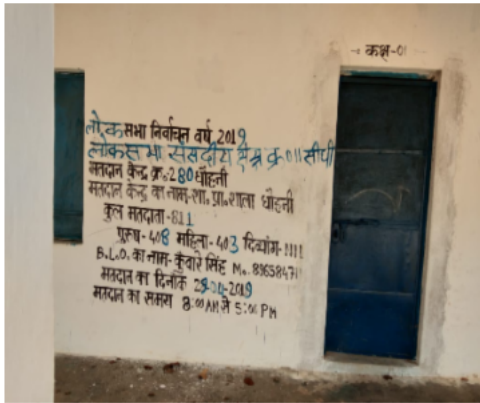 कक्ष-01
लोकसभा निर्वाचन वर्ष 2019
लोकसभा संसदीय क्षेत्र क्र 011 सीधी
मतदान केन्द्र क्र.-280 धौहनी
मतदान केन्द्र का नाम-शा. प्रा. शाला धौहनी
कुल मतदाता-811
पुरुष-408 महिला-403 दिव्यांग-
B.L.O. का नाम-कुंवारे सिंह M..
मतदान का दिनांक 29-04-2019
मतदान का समय 8:00 AM से 5:00 PM